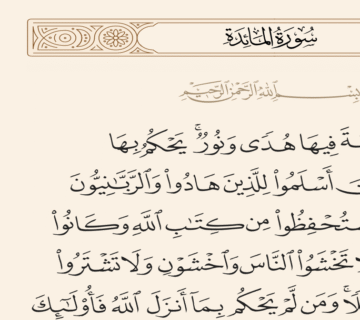 سُورَةُ المَائِدَةِ
اللَّهِ الرَّحْمَٰنِ الرَّحِيمِ
فِيهَا هُدًى وَنُورٌ ۚ يَحْكُمُ بِهَا
أَسْلَمُوا۟ لِلَّذِينَ هَادُوا۟ وَالرَّبَّٰنِيُّونَ
ٱسْتُحْفِظُوا۟ مِن كِتَٰبِ ٱللَّهِ وَكَانُوا۟
تَخْشَوُا۟ ٱلنَّاسَ وَٱخْشَوْنِ وَلَا تَشْتَرُوا۟
وَمَن لَّمْ يَحْكُم بِمَآ أَنزَلَ ٱللَّهُ فَأُو۟لَٰٓئِكَ